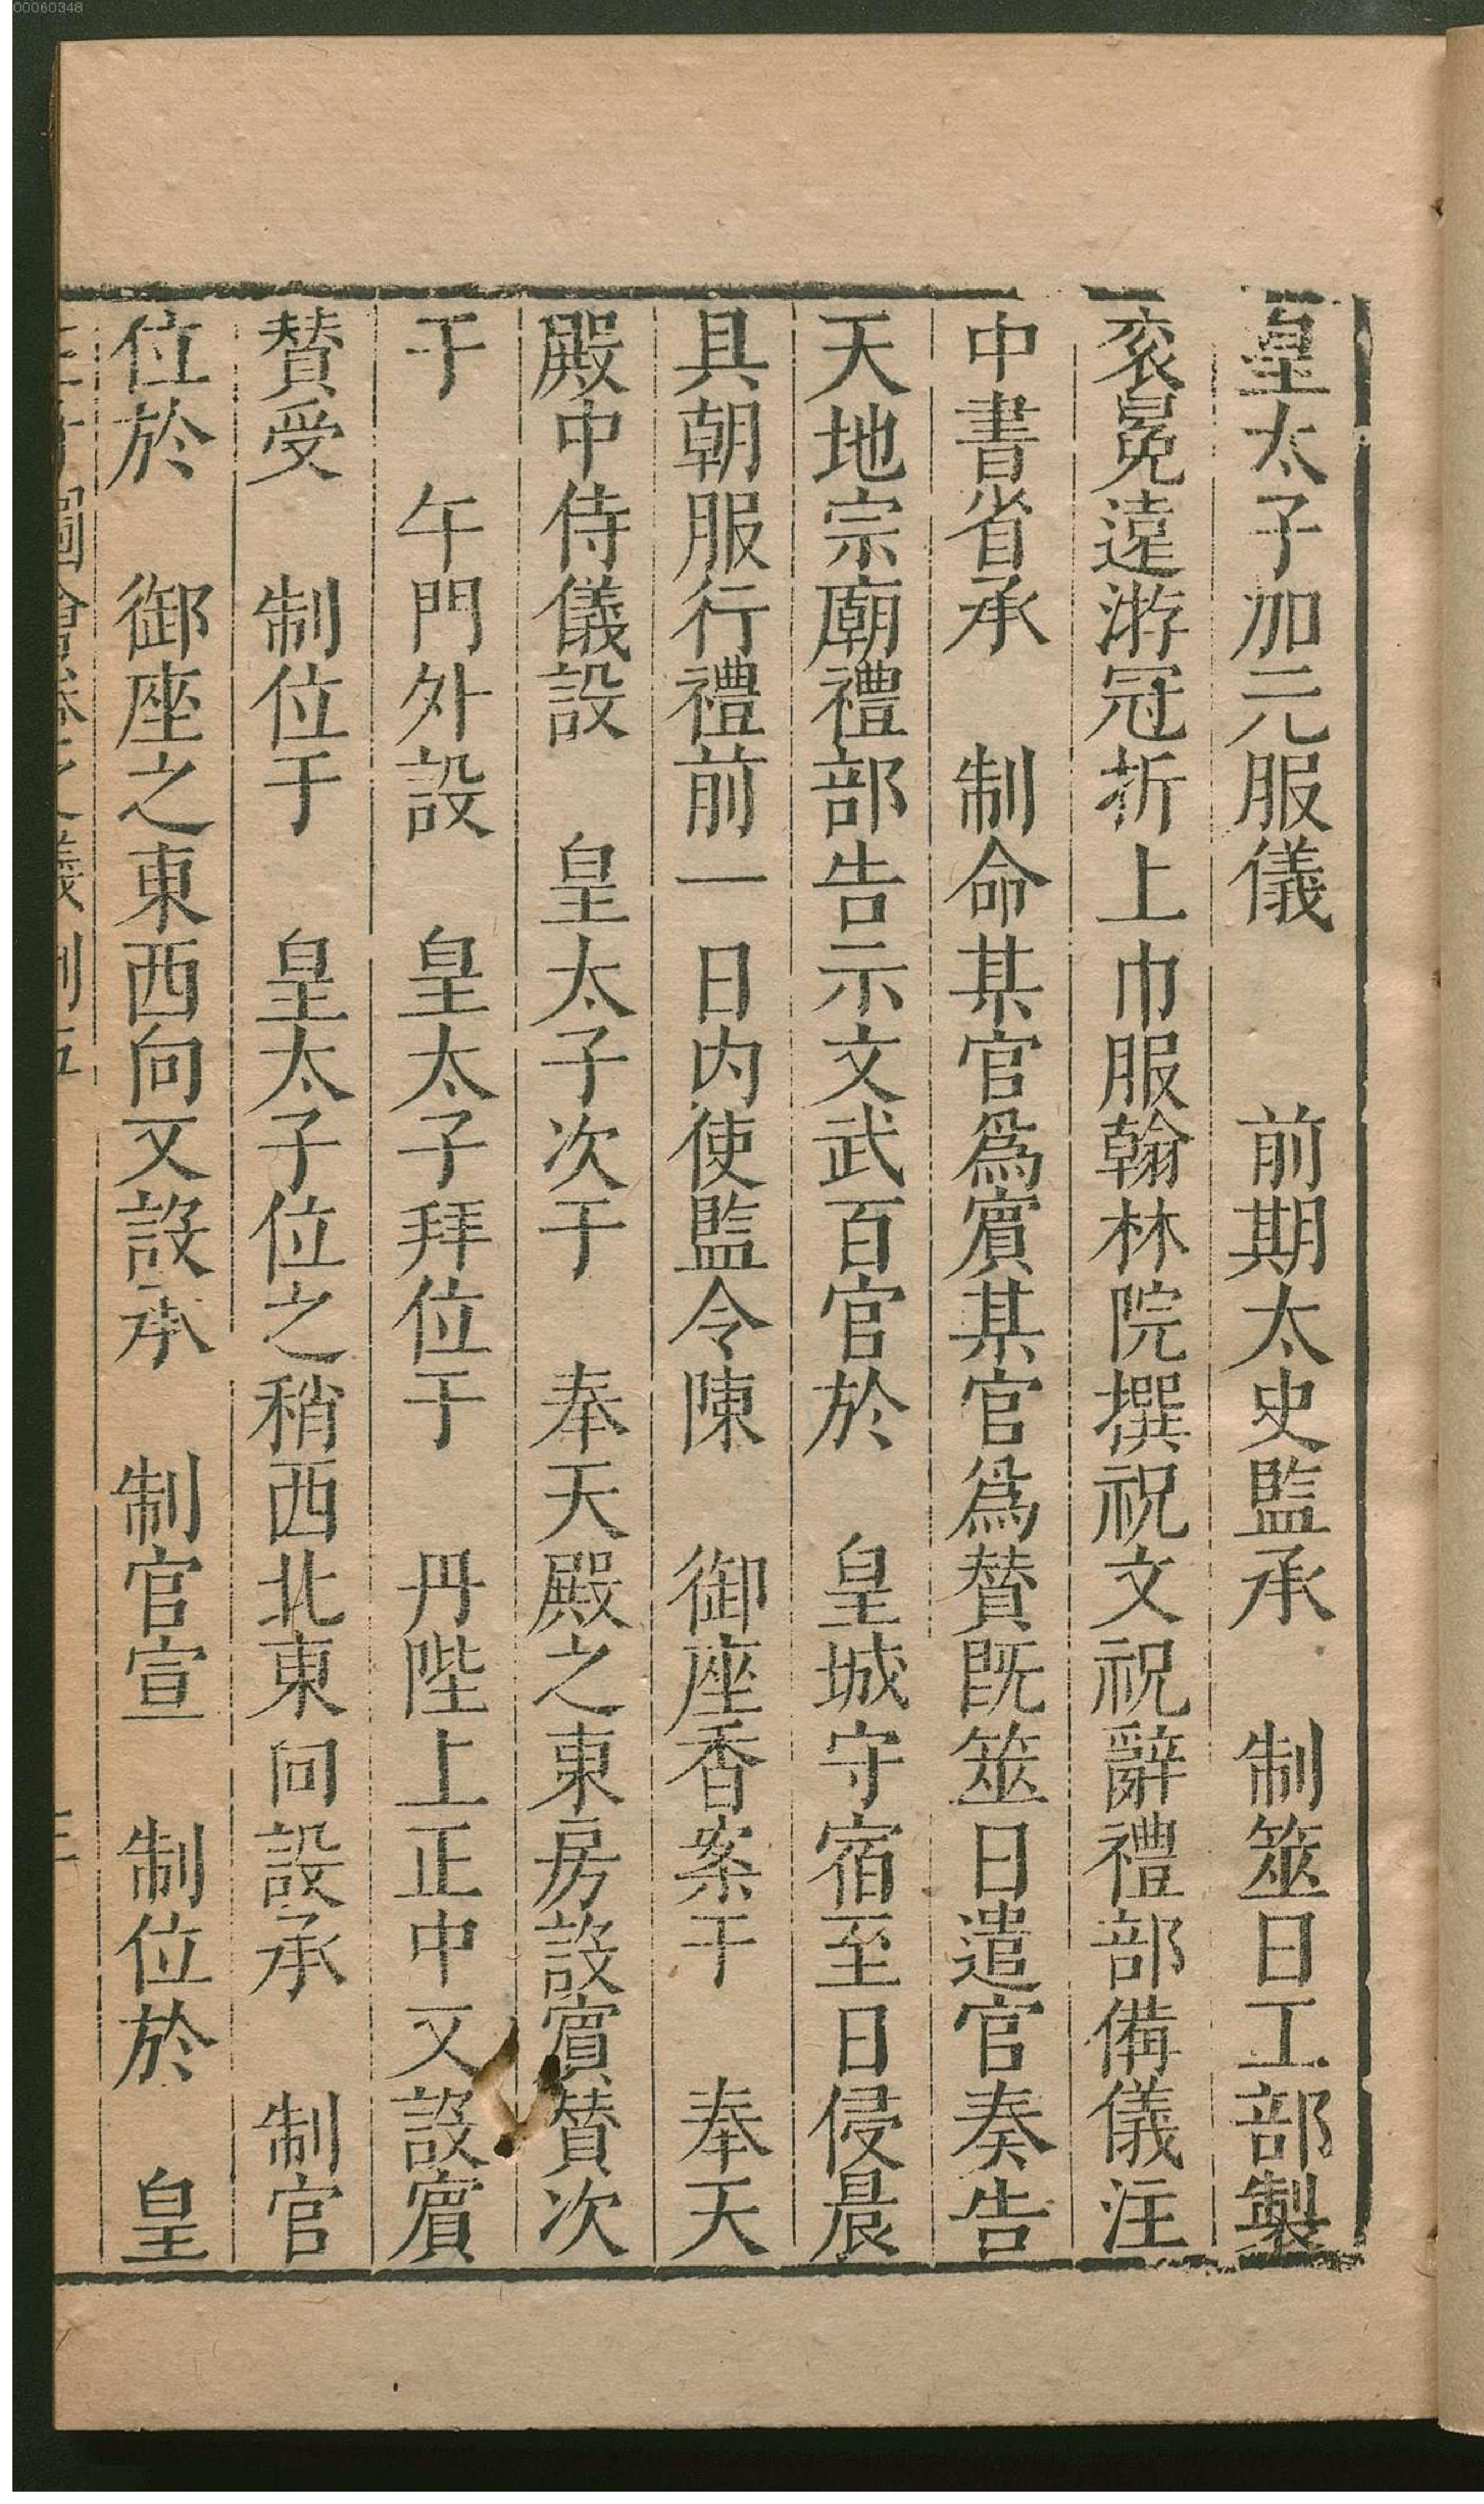 00060348
皇太子加元服儀　　前期太史監承　制筮日工部製
袞冕遠游冠折上巾服翰林院撰祝文祝辭禮部備儀注
中書省承　制命某官爲賓某官爲贊旣筮日遣官奏告
天地宗廟禮部告示文武百官於　皇城守宿至日侵晨
具朝服行禮前一日内使監令陳　御座香案于　奉天
殿中侍儀設　皇太子次于　奉天殿之東房設賓贊次
于　午門外設　皇太子拜位于　丹陛上正中又設賓
贊受　制位于　皇太子位之稍西北東向設承　制官
位於　御座之東西向又設承　制官宣　制位於　皇
圖會卷之儀制五